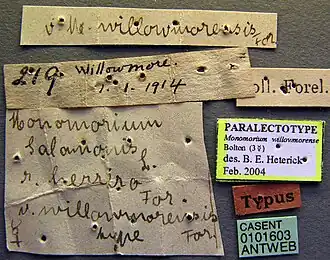 v. willowmorensis
For
219 Willowmore.
1.1.1914
oll. Forel.
Monomorium
Salamonis L.
r. herrero For.
v. willowmorensis
type For
PARALECTOTYPE
Monomorium willowmorense
Bolton (3☿)
des. B. E. Heterick
Feb. 2004
Typus
CASENT
0101603
ANTWEB